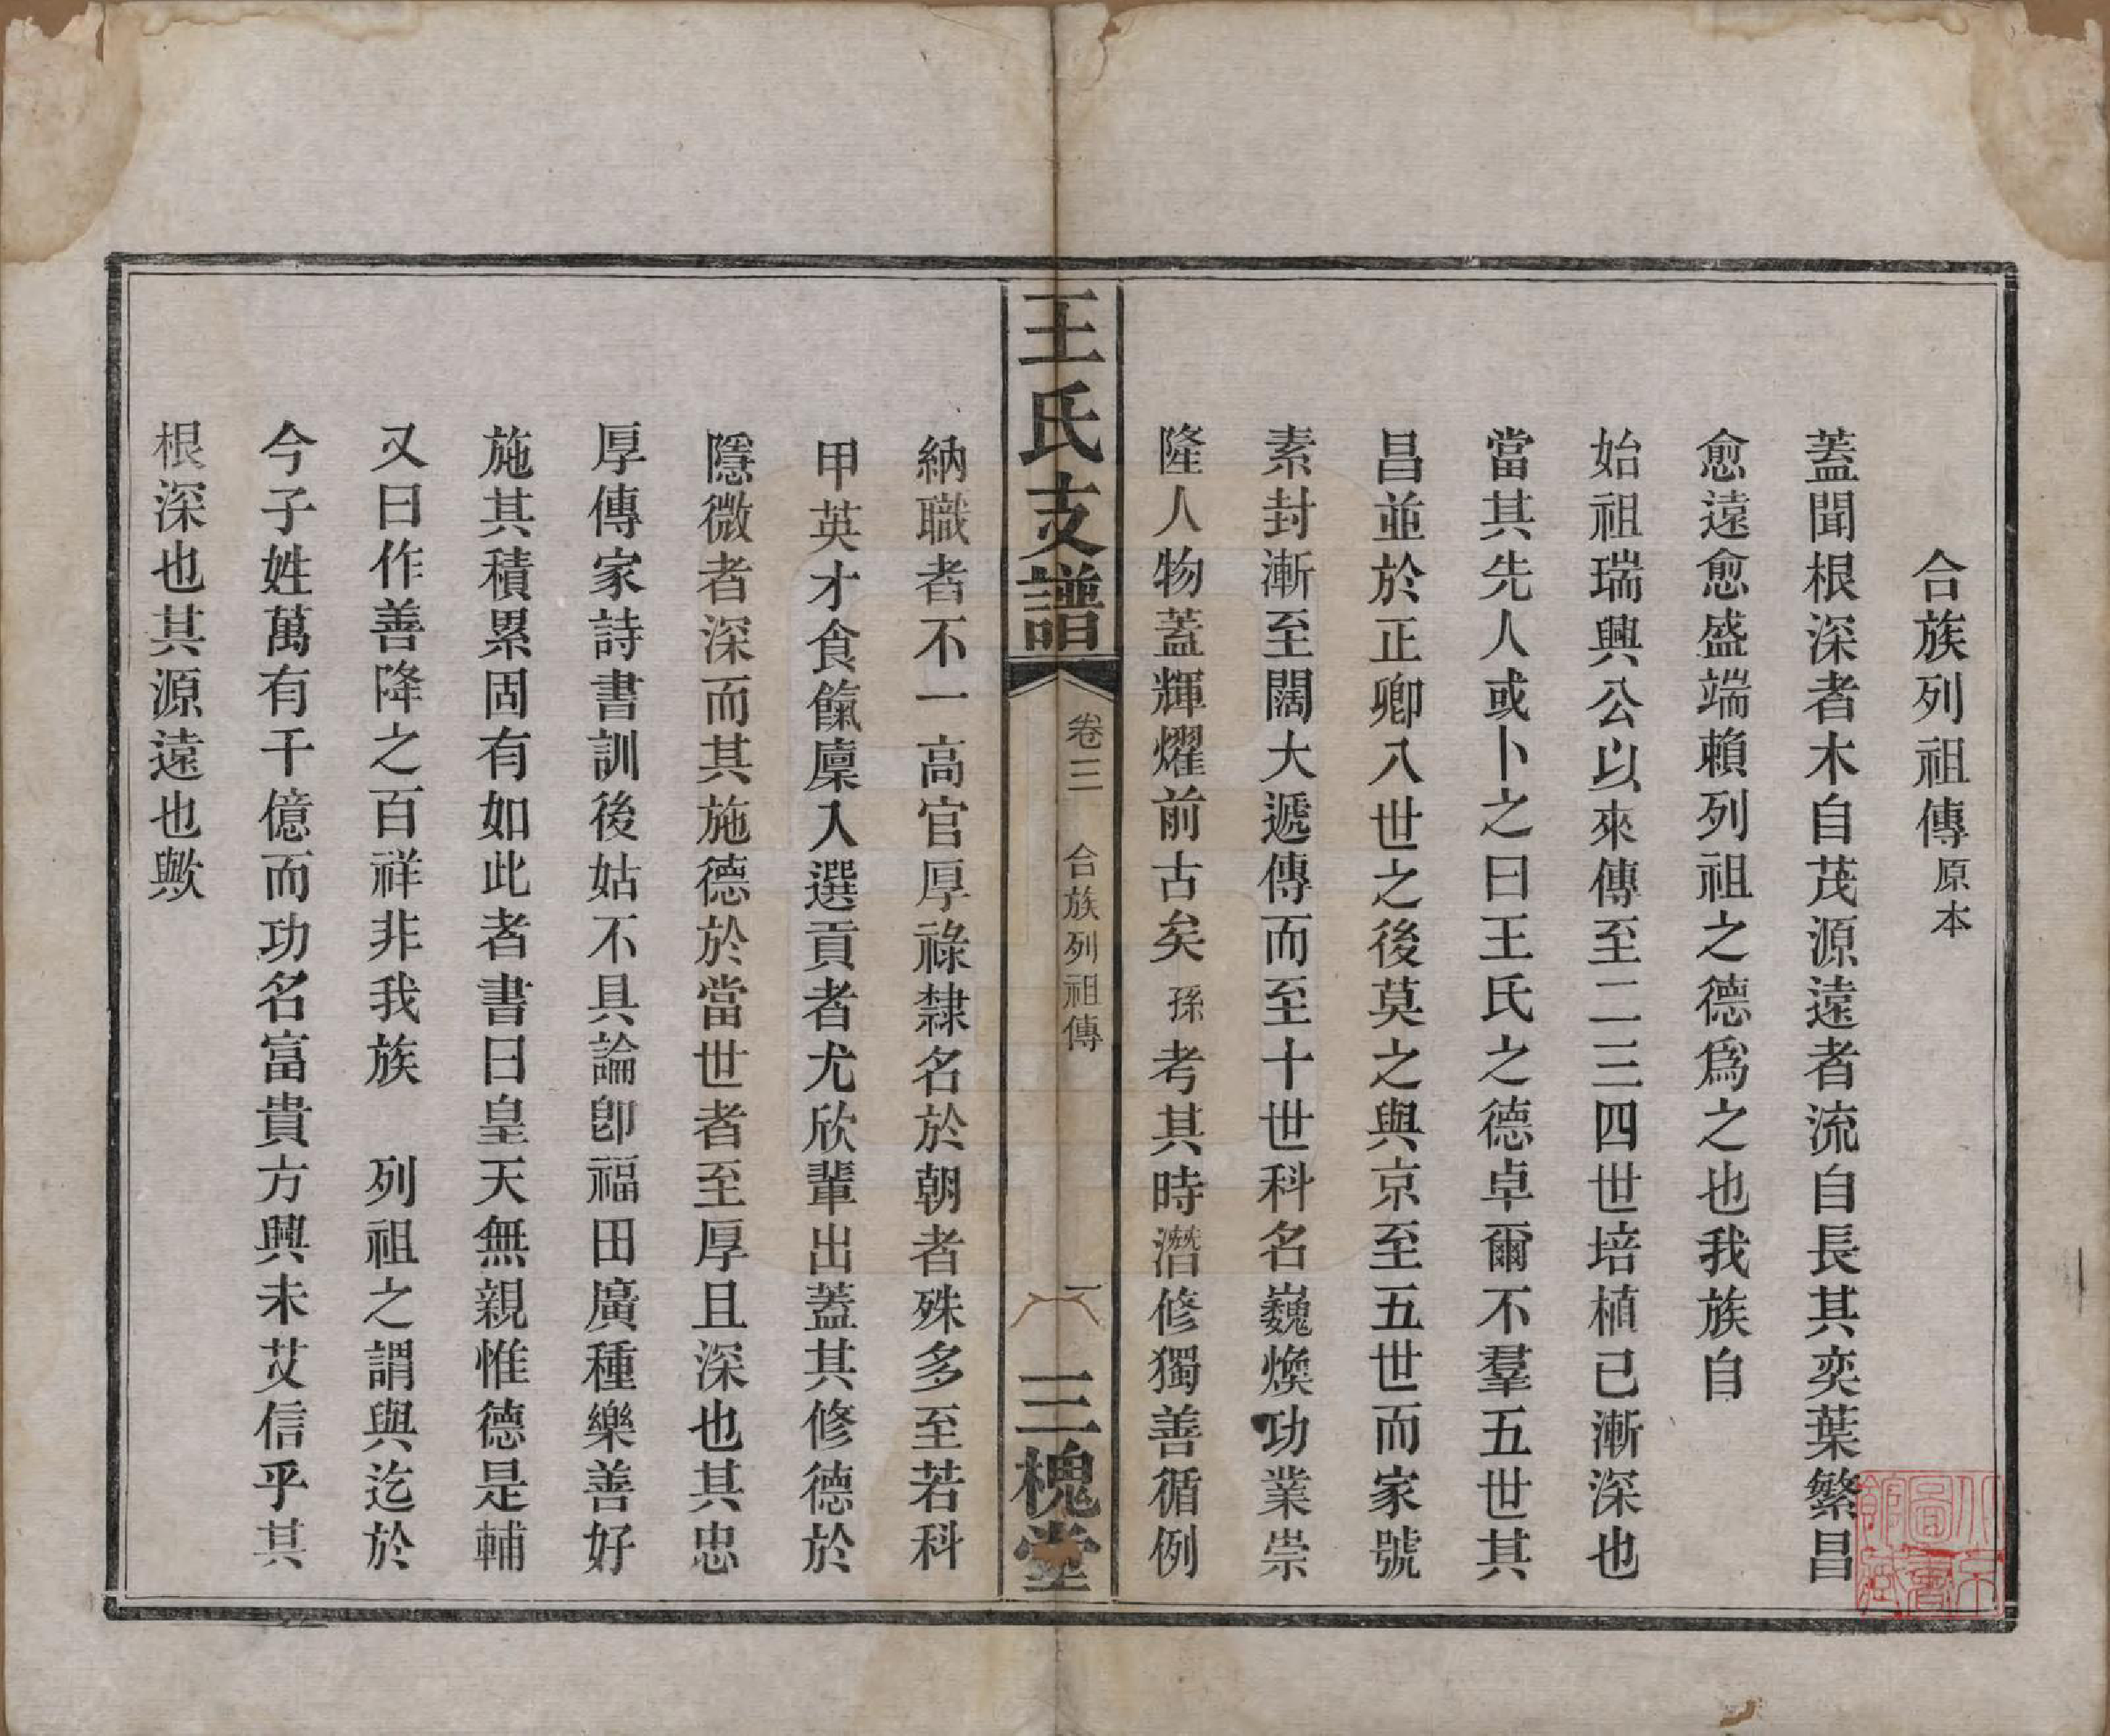 合族列祖傳原本
蓋聞根深者木自茂源遠者流自長其奕葉繁昌
愈遠愈盛端賴列祖之德爲之也我族自
始祖瑞興公以來傳至二三四世培植已漸深也
當其先人或卜之曰王氏之德卓爾不羣五世其
昌並於正卿八世之後莫之與京至五世而家號
素封漸至闊大遞傳而至十世科名巍煥功業崇
隆人物蓋輝耀前古矣孫考其時潛修獨善循例
王氏支譜
卷三 合族列祖傳
一
三槐堂
納職者不一高官厚祿隸名於朝者殊多至若科
甲英才食餼廩入選貢者尤欣輩出蓋其修德於
隱微者深而其施德於當世者至厚且深也其忠
厚傳家詩書訓後姑不具論卽福田廣種樂善好
施其積累固有如此者書曰皇天無親惟德是輔
又曰作善降之百祥非我族 列祖之謂與迄於
今子姓萬有千億而功名富貴方興未艾信乎其
根深也其源遠也歟